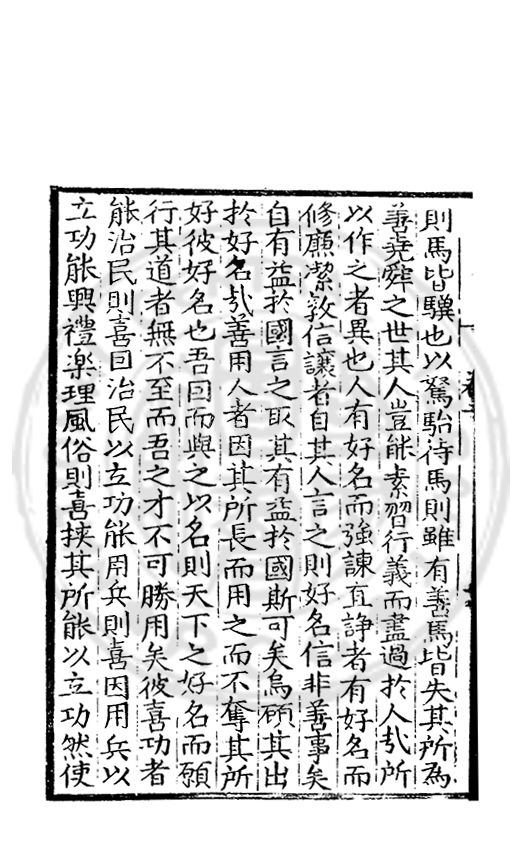 則馬皆驥也以駑駘待馬則雖有善馬皆失其所為
善堯舜之世其人豈能素習行義而盡過於人㢤所
以作之者異也人有好名而強諫直諍者有好名而
修廉潔敦信讓者自其人言之則好名信非善事矣
自有益於國言之取其有益於國斯可矣烏顧其出
於好名㢤善用人者因其所長而用之而不奪其所
好彼好名也吾因而與之以名則天下之好名而願
行其道者無不至而吾之才不可勝用矣彼喜功者
能治民則喜因治民以立功能用兵則喜因用兵以
立功能興禮楽理風俗則喜挾其所能以立功然使